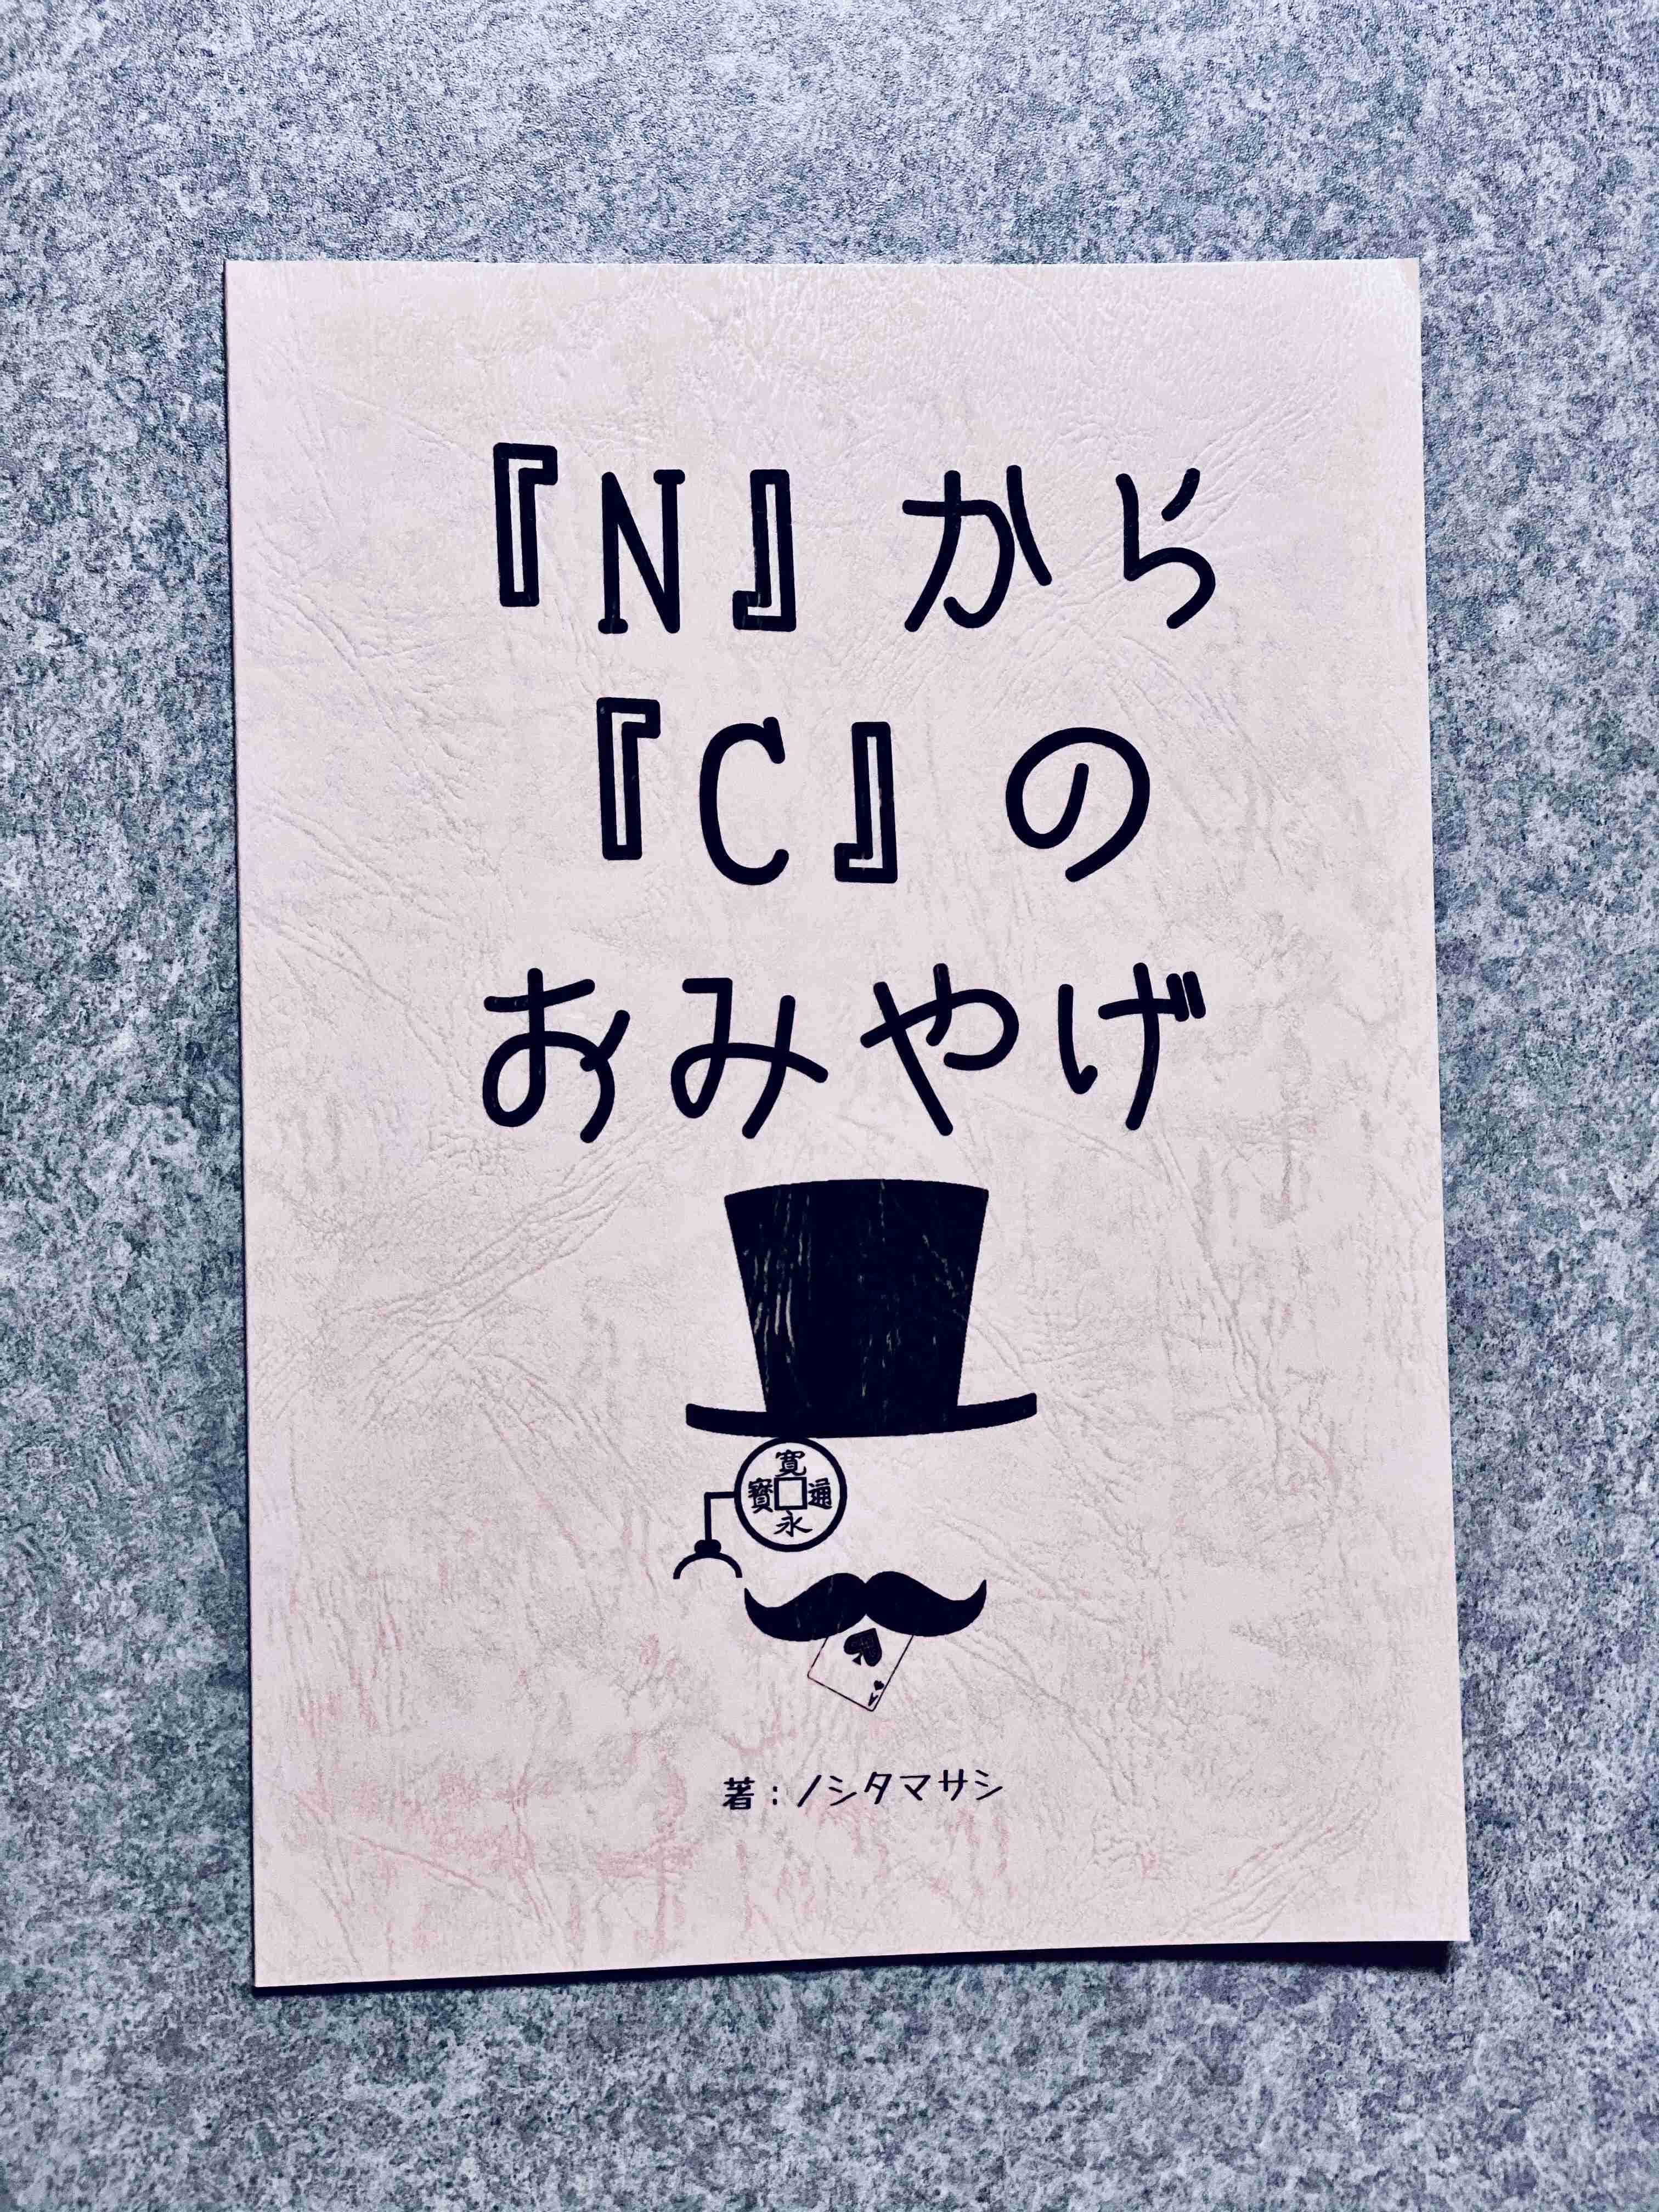 『N』から
『C』の
おみやげ
寛
寳 通
永
A
著：ノシタマサシ